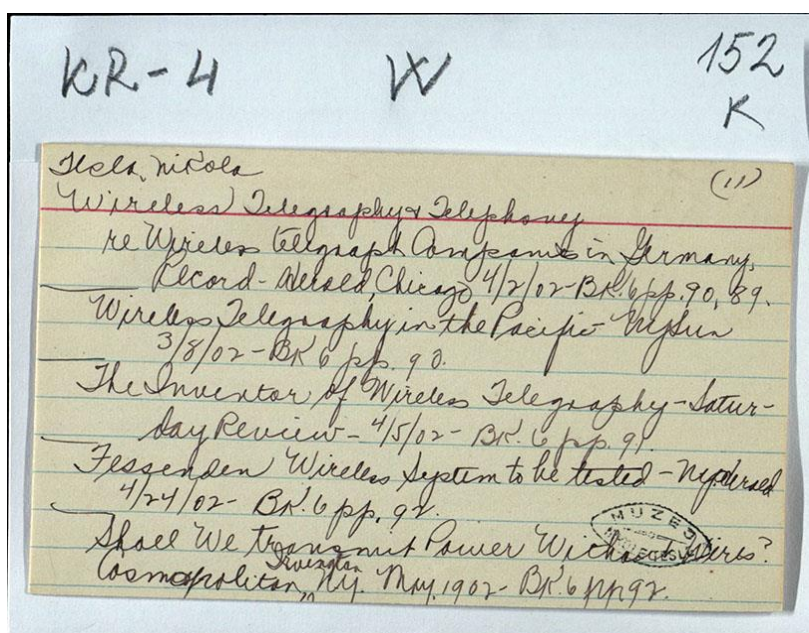 KR-4 W 152
K
Tesla, Nikola (11)
Wireless Telegraphy & Telephony
re Wireless telegraph Companies in Germany,
Record-Herald, Chicago 4/2/02-BK.6 pp. 90, 89.
Wireless Telegraphy in the Pacific - NY Sun
3/8/02-BK 6 pp. 90.
The Inventor of Wireless Telegraphy-Satur-
day Review-4/5/02-BK.6 pp. 91
Fessenden Wireless System to be tested-NY Herald
4/24/02-BK.6 pp. 92.
Shall We transmit Power Without Wires?
Irvington
Cosmopolitan, NY. May, 1902-BK.6 pp 92.
MUZEJ